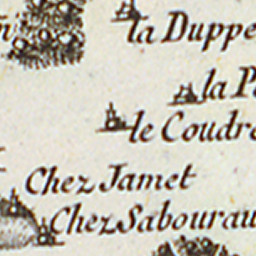 la Duppe
la P
le Coudr
Chez Jamet
Chez Sabourau